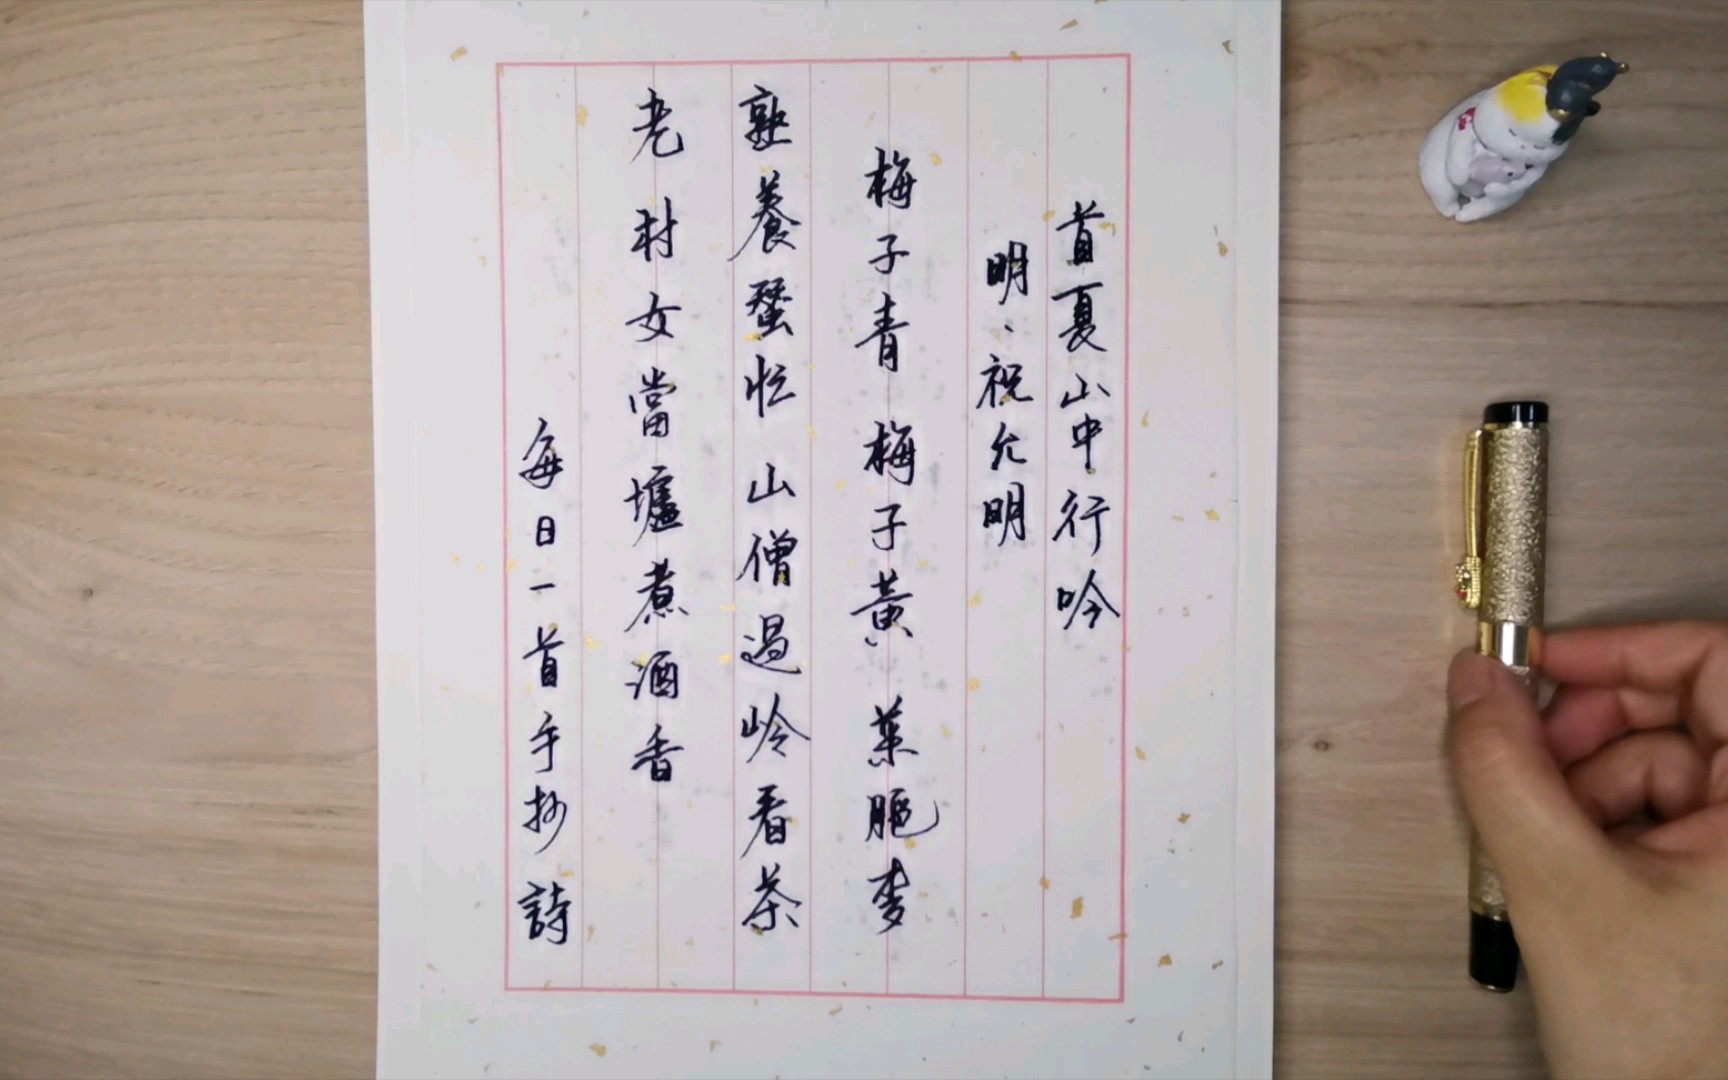 首夏山中行吟
明、祝允明
梅子青梅子黃菜肥麥
熟養蠶忙山僧過岭看茶
老村女當壚煮酒香
每日一首手抄詩